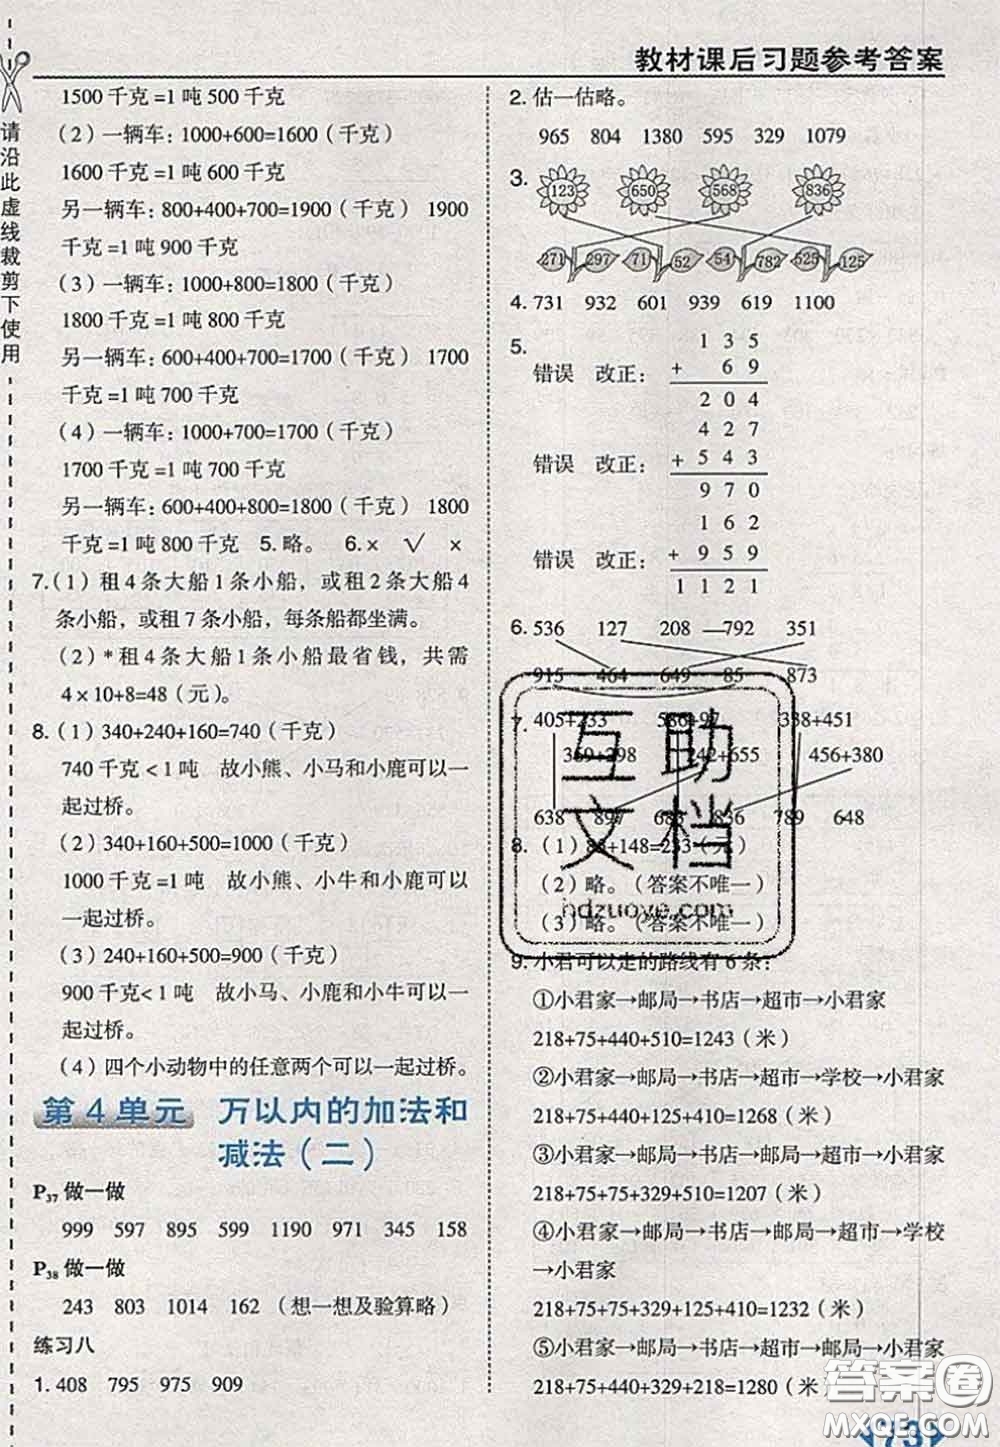 教材课后习题参考答案
请沿此虚线裁剪下使用
1500千克=1吨500千克
（2）一辆车：1000+600=1600（千克）
1600千克=1吨600千克
另一辆车：800+400+700=1900（千克） 1900
千克=1吨900千克
（3）一辆车：1000+800=1800（千克）
1800千克=1吨800千克
另一辆车：600+400+700=1700（千克） 1700
千克=1吨700千克
（4）一辆车：1000+700=1700（千克）
1700千克=1吨700千克
另一辆车：600+400+800=1800（千克） 1800
千克=1吨800千克 5.略。 6.× √ ×
7.（1）租4条大船1条小船，或租2条大船4
条小船，或租7条小船，每条船都坐满。
（2）*租4条大船1条小船最省钱，共需
4×10+8=48（元）。
8.（1）340+240+160=740（千克）
740千克<1吨 故小熊、小马和小鹿可以一
起过桥。
（2）340+160+500=1000（千克）
1000千克=1吨 故小熊、小牛和小鹿可以
一起过桥。
（3）240+160+500=900（千克）
900千克<1吨 故小马、小鹿和小牛可以一
起过桥。
（4）四个小动物中的任意两个可以一起过桥。
第4单元 万以内的加法和
减法（二）
P37 做一做
999 597 895 599 1190 971 345 158
P38 做一做
243 803 1014 162 （想一想及验算略）
练习八
1. 408 795 975 909
2. 估一估略。
965 804 1380 595 329 1079
3. 123 650 568 836
271 297 71 52 54 782 525 125
4. 731 932 601 939 619 1100
5.
错误 改正：
135
+ 69
204
错误 改正：
427
+ 543
970
错误 改正：
162
+ 959
1121
6. 536 127 208 792 351
915 464 649 85 873
7. 405+233 586+97 338+451
359+298 242+655 456+380
638 897 683 836 789 648
8.（1）85+148=233（元）
（2）略。（答案不唯一）
（3）略。（答案不唯一）
9. 小君可以走的路线有6条：
①小君家→邮局→书店→超市→小君家
218+75+440+510=1243（米）
②小君家→邮局→书店→超市→学校→小君家
218+75+440+125+410=1268（米）
③小君家→邮局→书店→邮局→超市→小君家
218+75+75+329+510=1207（米）
④小君家→邮局→书店→邮局→超市→学校
→小君家
218+75+75+329+125+410=1232（米）
⑤小君家→邮局→书店→超市→邮局→小君家
218+75+440+329+218=1280（米）
互助文档
hdzuoye.com
答案圈
MXQE.COM